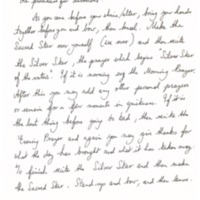 As you are before you shrine/altar, bring your hands
together before you and bow, then kneel. Make the
Sacred Star on yourself (see over) and then recite
the Silver Star, the prayer which begins "Silver Star
of the waters". If it is morning say the Morning Prayer.
After this you may add any other personal prayers
or remain for a few moments in quietness. If it is
the last thing before going to bed, then recite the
Evening Prayer and again you may give thanks for
what the day has brought and what it has taken away.
To finish recite the Silver Star and then make
the Sacred Star. Stand up and bow, and then leave.